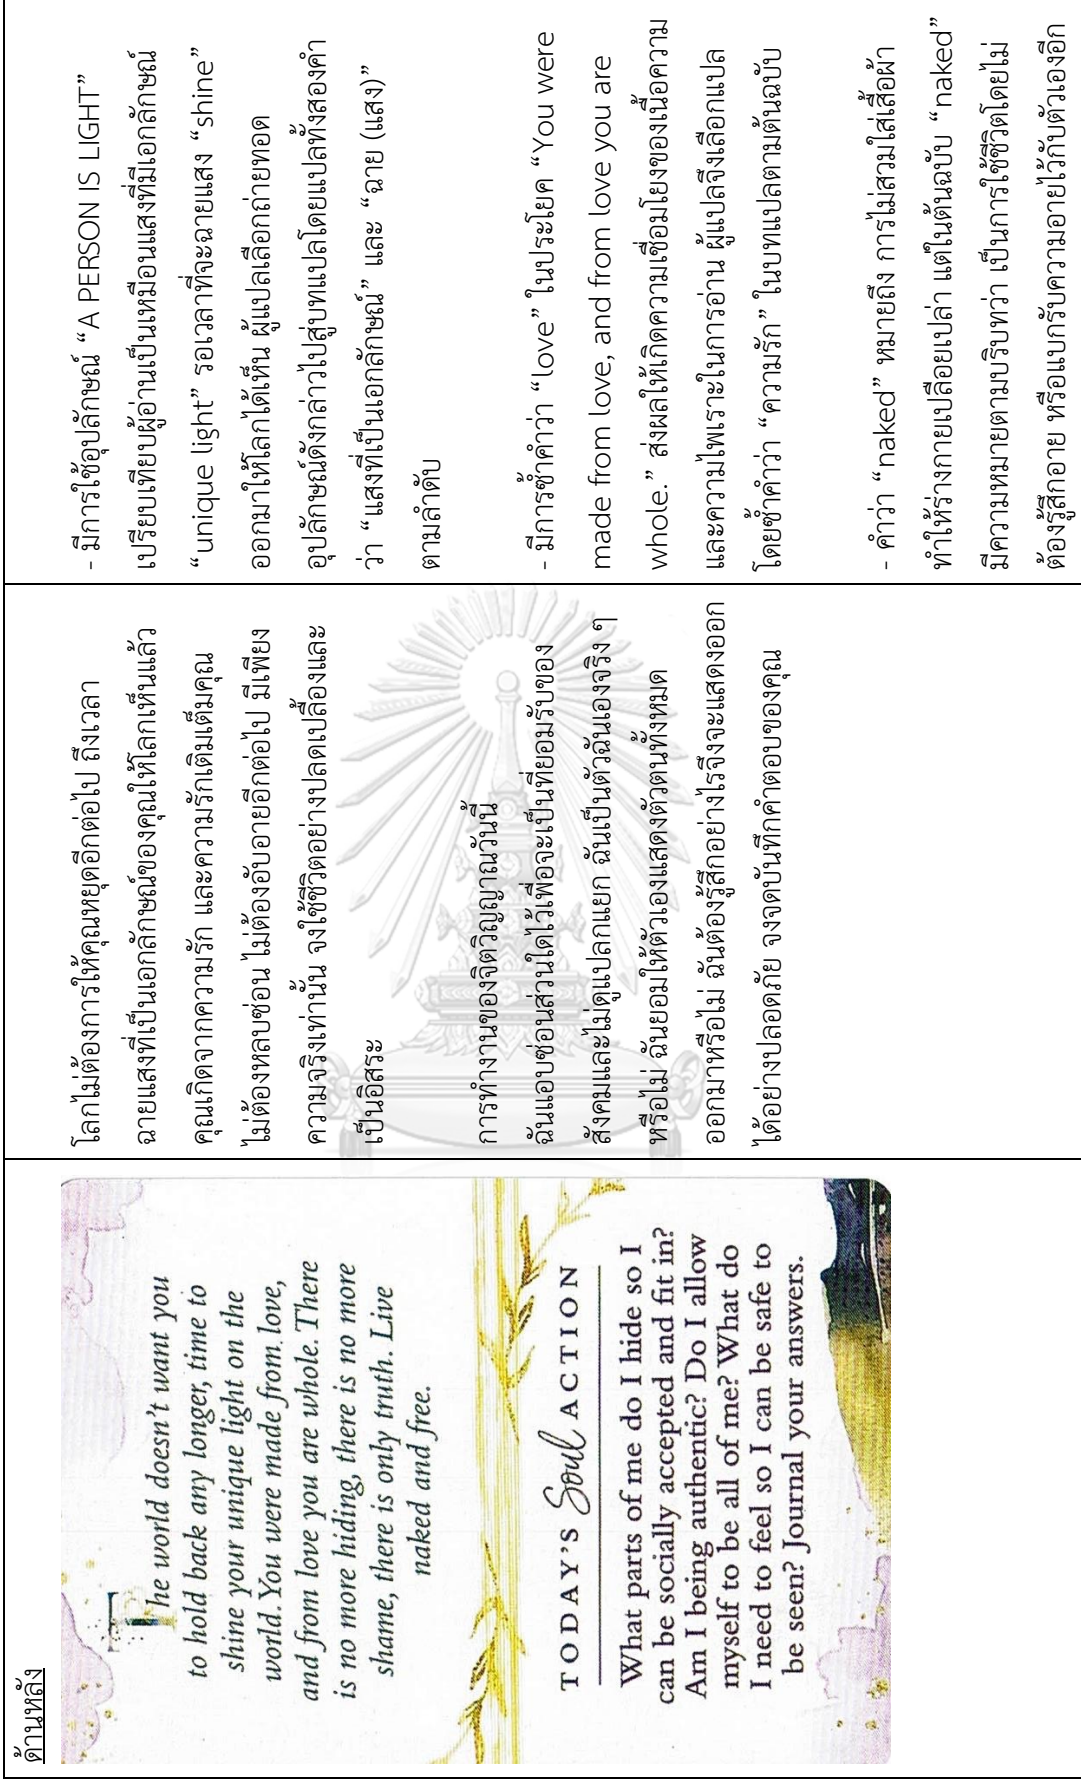 ด้านหลัง
The world doesn't want you
to hold back any longer, time to
shine your unique light on the
world. You were made from love,
and from love you are whole. There
is no more hiding, there is no more
shame, there is only truth. Live
naked and free.
TODAY'S Soul ACTION
What parts of me do I hide so I
can be socially accepted and fit in?
Am I being authentic? Do I allow
myself to be all of me? What do
I need to feel so I can be safe to
be seen? Journal your answers.
โลกไม่ต้องการให้คุณหยุดอีกต่อไป ถึงเวลา
ฉายแสงที่เป็นเอกลักษณ์ของคุณให้โลกเห็นแล้ว
คุณเกิดจากความรัก และความรักเติมเต็มคุณ
ไม่ต้องหลบซ่อน ไม่ต้องอับอายอีกต่อไป มีเพียง
ความจริงเท่านั้น จงใช้ชีวิตอย่างปลดเปลื้องและ
เป็นอิสระ
การทำงานของจิตวิญญาณวันนี้
ฉันแอบซ่อนส่วนใดไว้เพื่อจะเป็นที่ยอมรับของ
สังคมและไม่ดูแปลกแยก ฉันเป็นตัวฉันเองจริง ๆ
หรือไม่ ฉันยอมให้ตัวเองแสดงตัวตนทั้งหมด
ออกมาหรือไม่ ฉันต้องรู้สึกอย่างไรจึงจะแสดงออก
ได้อย่างปลอดภัย จงจดบันทึกคำตอบของคุณ
- มีการใช้อุปลักษณ์ “A PERSON IS LIGHT”
เปรียบเทียบผู้อ่านเป็นเหมือนแสงที่มีเอกลักษณ์
“unique light” รอเวลาที่จะฉายแสง “shine”
ออกมาให้โลกได้เห็น ผู้แปลเลือกถ่ายทอด
อุปลักษณ์ดังกล่าวไปสู่บทแปลโดยแปลทั้งสองคำ
ว่า “แสงที่เป็นเอกลักษณ์” และ “ฉาย (แสง)”
ตามลำดับ
- มีการซ้ำคำว่า “love” ในประโยค “You were
made from love, and from love you are
whole.” ส่งผลให้เกิดความเชื่อมโยงของเนื้อความ
และความไพเราะในการอ่าน ผู้แปลจึงเลือกแปล
โดยซ้ำคำว่า “ความรัก” ในบทแปลตามต้นฉบับ
- คำว่า “naked” หมายถึง การไม่สวมใส่เสื้อผ้า
ทำให้ร่างกายเปลือยเปล่า แต่ในต้นฉบับ “naked”
มีความหมายตามบริบทว่า เป็นการใช้ชีวิตโดยไม่
ต้องรู้สึกอาย หรือแบกรับความอายไว้กับตัวเองอีก